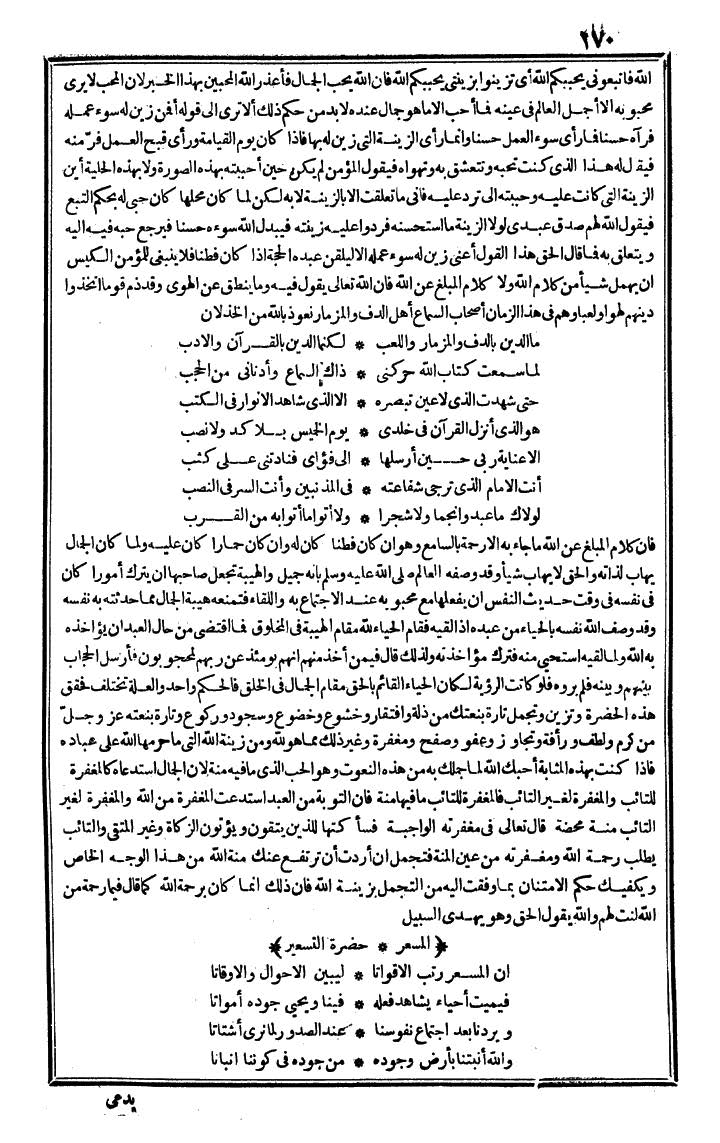 ٢٧٠
الله فاتبعونى يحببكم الله أى تزينوا بزينتى يحببكم الله فان الله يحب الجمال فأعذر الله المحبين بهذا الخبر لان المحب لا يرى
محبوبه الا أجمل العالم فى عينه فما أحب الا ما هو جمال عنده لا بد من حكم ذلك ألا ترى الى قوله أفمن زين له سوء عمله
فرآه حسنا فما رأى سوء العمل حسنا وانما رأى الزينة التى زين له بها فاذا كان يوم القيامة ورأى قبح العمل فر منه
فيقل له هذا الذى كنت تحبه وتتعشق به وتهواه فيقول المؤمن لم يكن حين أحببته بهذه الصورة ولا بهذه الحلية أين
الزينة التى كانت عليه وحببته الى ترد عليه فانى ما تعلقت الا بالزينة لا به لكن لما كان محلها كان حبى له بحكم التبع
فيقول الله لهم صدق عبدى لولا الزينة ما استحسنه فردوا عليه زينته فيبدل الله سوءه حسنا فيرجع حبه فيه اليه
ويتعلق به فما قال الحق هذا القول أعنى زين له سوء عمله الا ليلقن عبده الحجة اذا كان فطنا فلا ينبغى للمؤمن الكيس
ان يهمل شيأ من كلام الله ولا كلام المبلغ عن الله فان الله تعالى يقول فيه وما ينطق عن الهوى وقد ذم قوما اتخذوا
دينهم لهوا ولعبا وهم فى هذا الزمان أصحاب السماع أهل الدف والمزمار نعوذ بالله من الخذلان
ما الدين بالدف والمزمار واللعب * لكنما الدين بالقرآن والادب
لما سمعت كتاب الله حركنى * ذاك السماع وأدنانى من الحجب
حتى شهدت الذى لا عين تبصره * الا الذى شاهد الانوار فى الكتب
هو الذى أنزل القرآن فى خلدى * يوم الخيس بلا كد ولا نصب
الا عناية ربى حين أرسلها * الى فؤاى فنادتنى على كثب
أنت الامام الذى ترجى شفاعته * فى المذنبين وأنت السر فى النصب
لولاك ما عبدوا نجما ولا شجرا * ولا أتوا ما أتوا به من القرب
فان كلام المبلغ عن الله ما جاء به الا رحمة بالسامع وهو ان كان فطنا كان له وان كان حمارا كان عليه ولما كان الجمال
يهاب لذاته والحق لا يهاب شيأ وقد وصفه العالم صلى الله عليه وسلم بانه جميل والهيبة تجعل صاحبها ان يترك أمورا كان
فى نفسه فى وقت حديث النفس ان يفعلها مع محبوبه عند الاجتماع به واللقاء فتمنعه هيبة الجمال مما حدثته به نفسه
وقد وصف الله نفسه بالحياء من عبده اذا لقيه فقام الحياء لله مقام الهيبة فى المخلوق فما اقتضى من حال العبد ان يؤاخذه
به الله ولما لقيه استحيى منه فترك مؤاخذته ولذلك قال فيمن أخذ منهم انهم عن ربهم يومئذ لمحجوبون فأرسل الحجاب
بينهم وبينه فلم يروه فلو كانت الرؤية لكان الحياء القائم بالحق مقام الجمال فى الخلق فالحكم واحد والعلة تختلف فحقق
هذه الحضرة وتزين وتجمل تارة بنعتك من ذلة وافتقار وخشوع وخضوع وسجود وركوع وتارة بنعته عز وجل
من كرم ولطف ورأفة وتجاوز وعفو وصفح ومغفرة وغير ذلك مما هو لله ومن زينة الله التى ما حرمها الله على عباده
فاذا كنت بهذه المثابة أحبك الله لما جملك به من هذه النعوت وهو الحب الذى ما فيه منة لان الجمال استدعاه كالمغفرة
للتائب والمغفرة لغير التائب فالمغفرة للتائب ما فيها منة فان التوبة من العبد استدعت المغفرة من الله والمغفرة لغير
التائب منة محضة قال تعالى فى مغفرته الواجبة فسأكتبها للذين يتقون ويؤتون الزكاة وغير المتقى والتائب
يطلب رحمة الله ومغفرته من عين المنة فتجمل ان أردت أن ترتفع عنك منة الله من هذا الوجه الخاص
ويكفيك حكم الامتنان بما وفقت اليه من التجمل بزينة الله فان ذلك انما كان برحمة الله كما قال فبما رحمة من
الله لنت لهم والله يقول الحق وهو يهدى السبيل
﴿المسعر * حضرة التسعير﴾
ان المسعر رتب الاقواتا * ليبين الاحوال والاوقاتا
فيميت أحياء يشاهد فعله * فينا ويحيى جوده أمواتا
ويردنا بعد اجتماع نفوسنا * عند الصدور لما نرى أشتاتا
والله أنبتنا بأرض وجوده * من جوده فى كوننا انباتا
يدعى